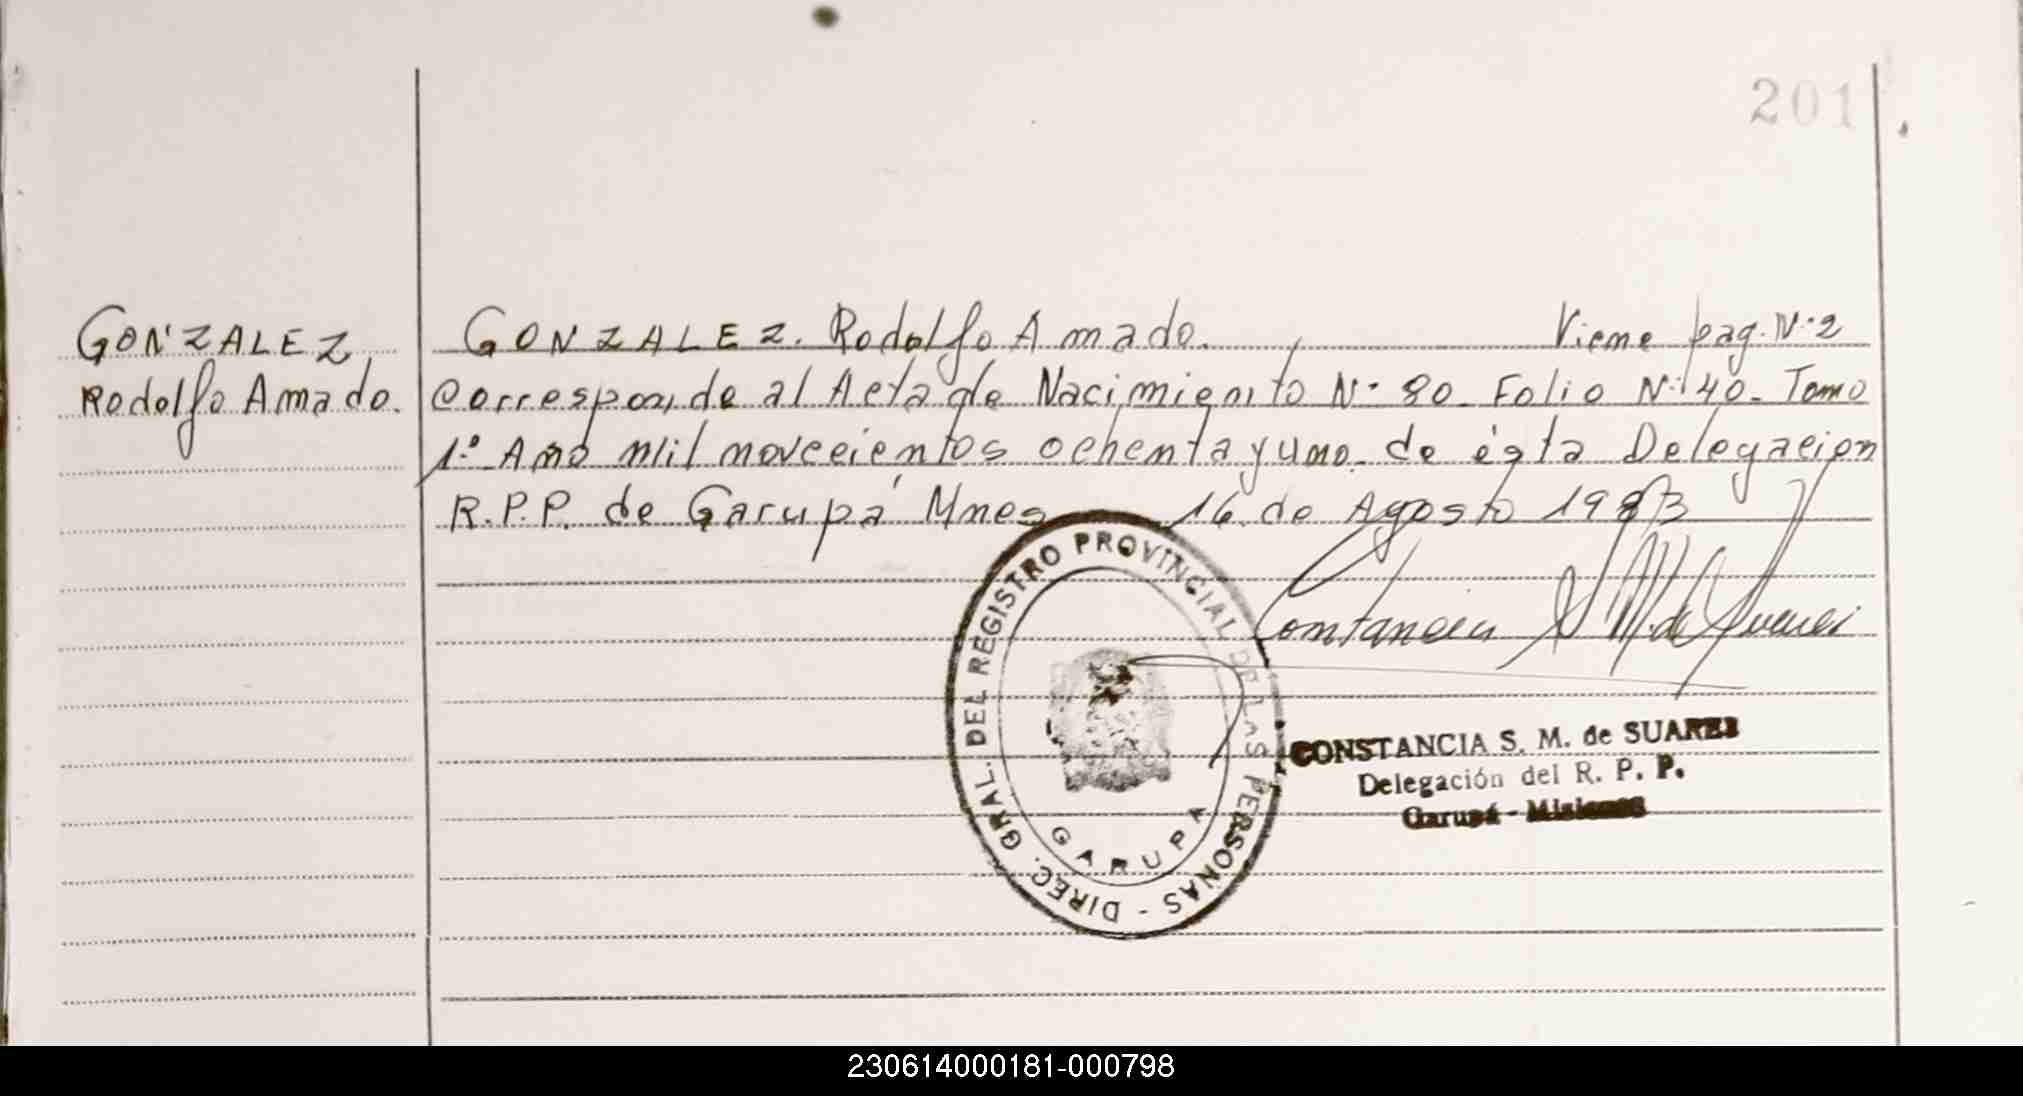 201
GONZALEZ, Rodolfo Amado.
GONZALEZ. Rodolfo Amado. Viene pag. N·2
Corresponde al Acta de Nacimiento N· 80 - Folio N· 40 - Tomo
1º Año mil novecientos ochenta y uno de ésta Delegacion
R.P.P. de Garupá Mnes 16 de Agosto 1983
Constancia S M. de Suarez
DIREC. GRAL. DEL REGISTRO PROVINCIAL DE LAS PERSONAS -
GARUPA
CONSTANCIA S. M. de SUAREZ
Delegación del R. P. P.
Garupá - Misiones
230614000181-000798